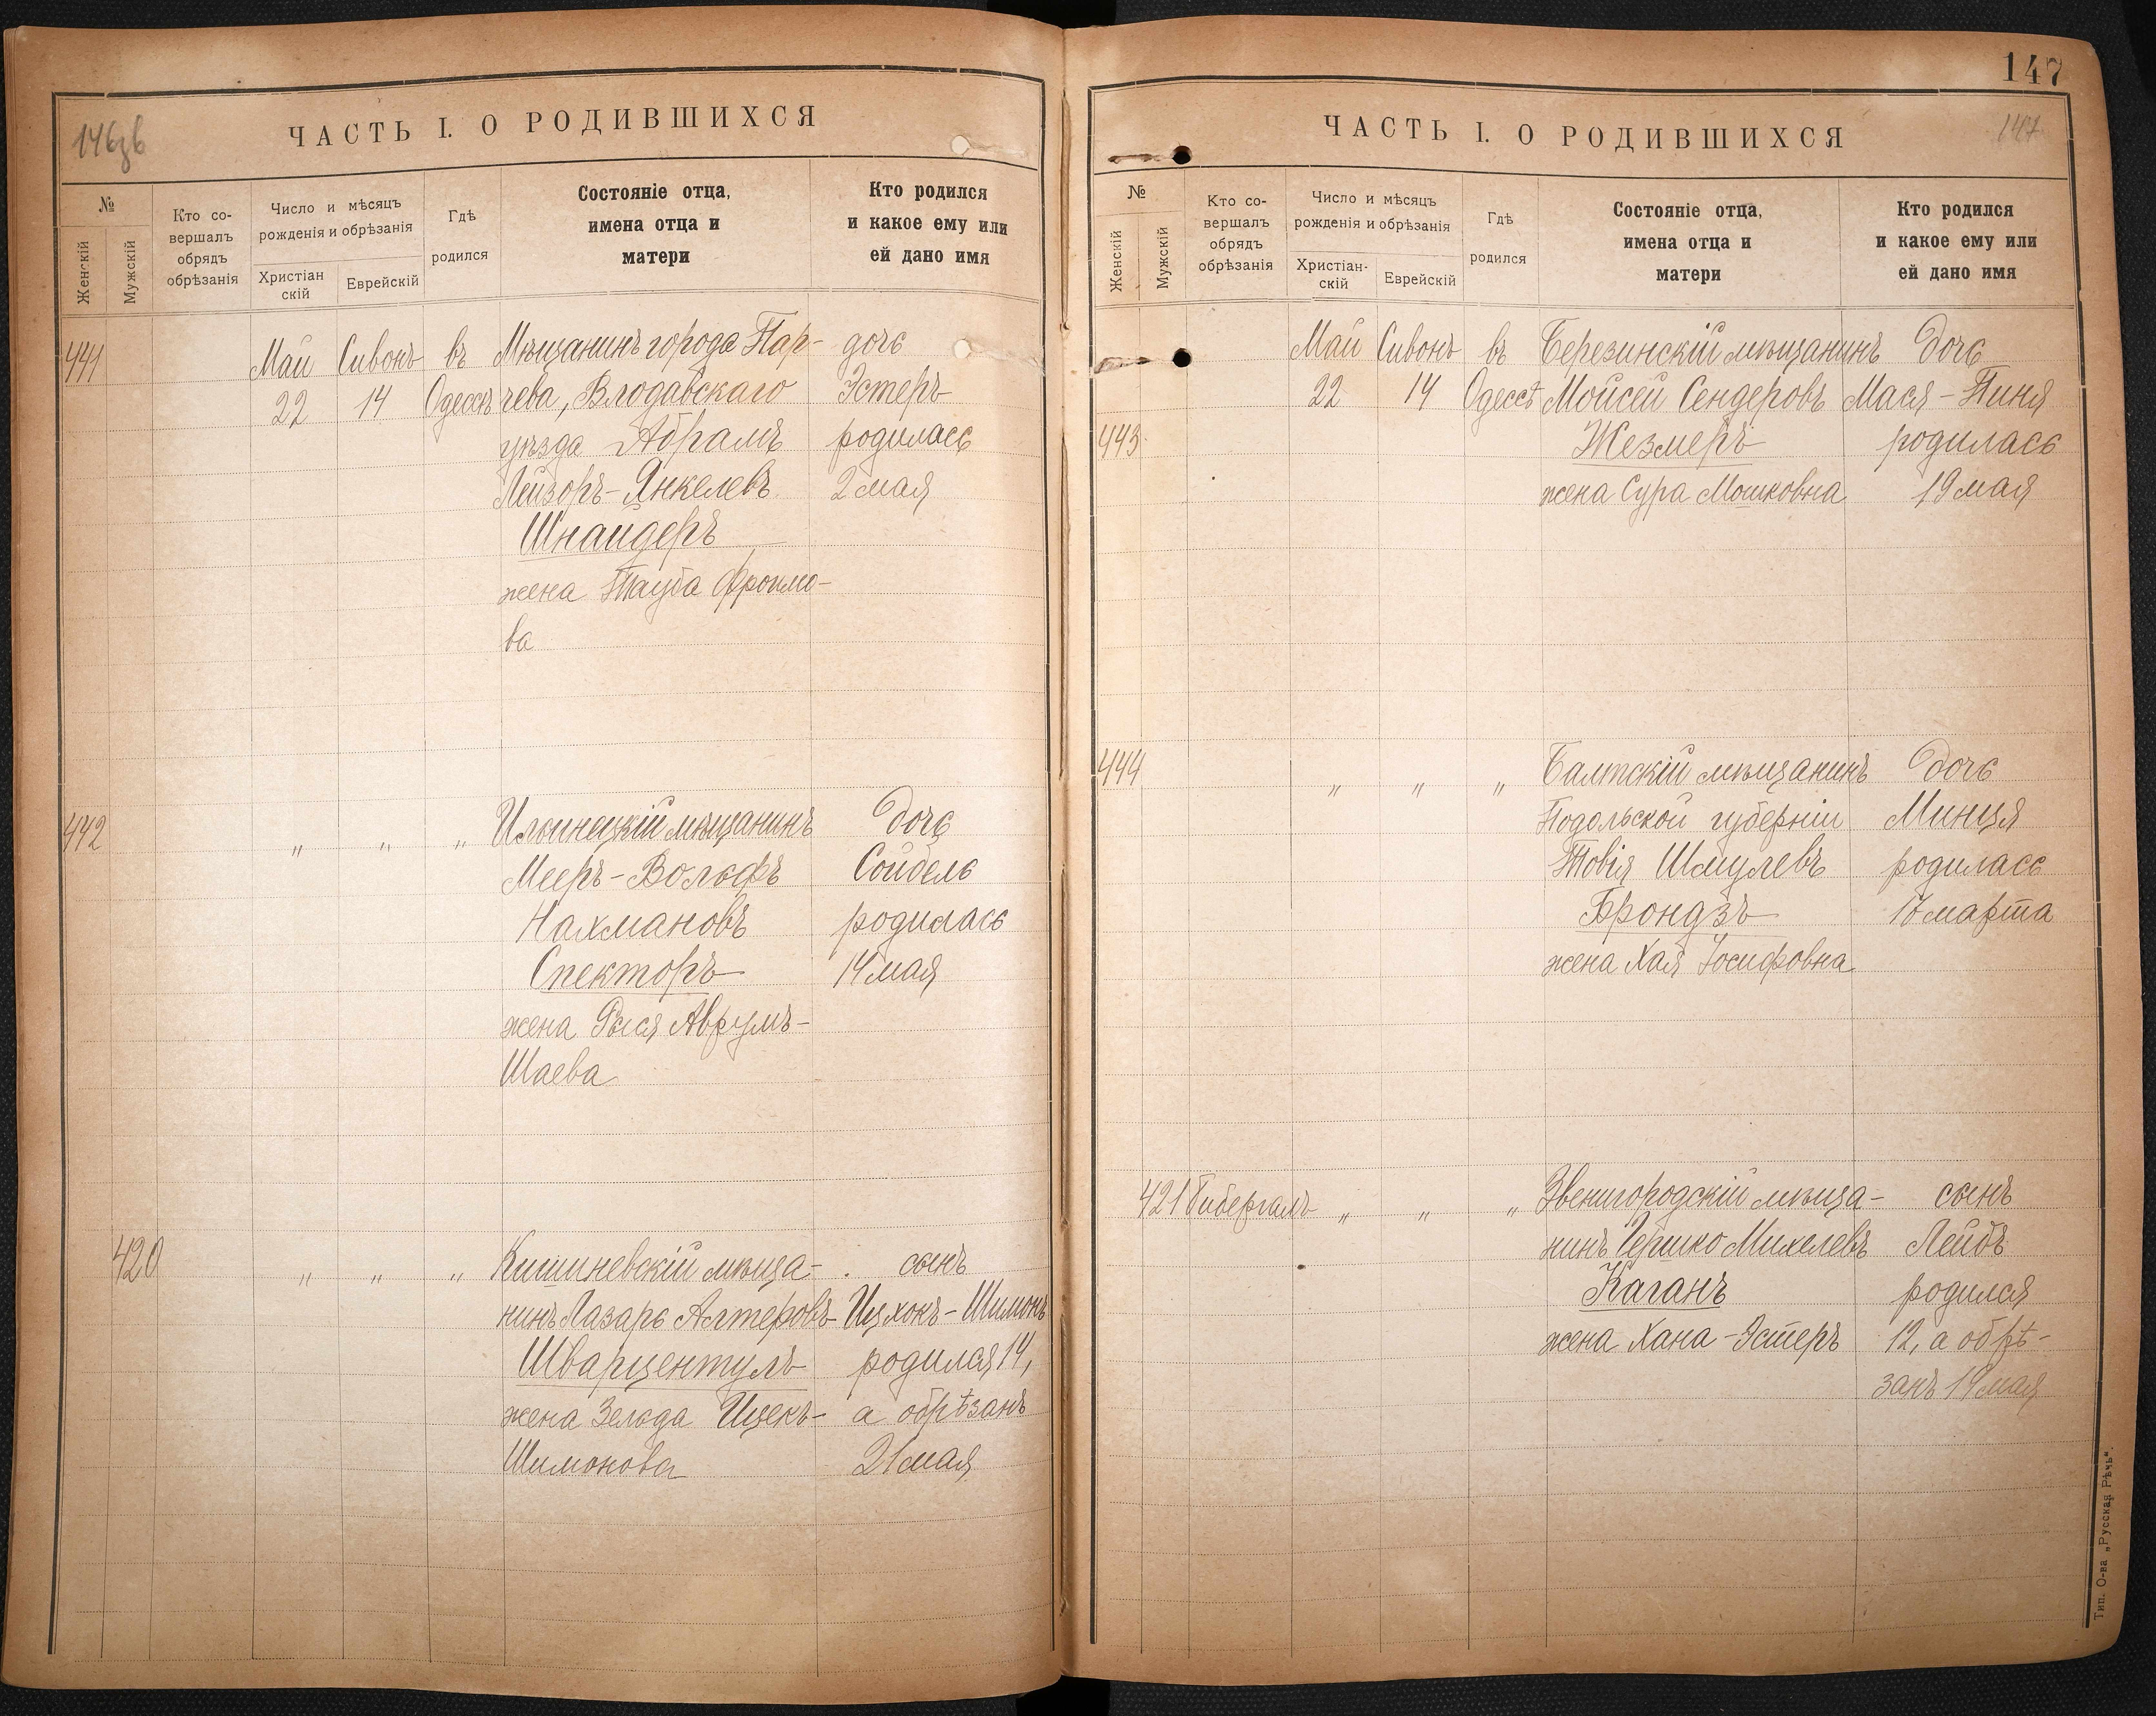 146об
ЧАСТЬ I. О РОДИВШИХСЯ
№
Женскій
Мужскій
Кто со-
вершалъ
обрядъ
обрѣзанія
Число и мѣсяцъ
рожденія и обрѣзанія
Христіан
скій
Еврейскій
Гдѣ
родился
Состояніе отца,
имена отца и
матери
Кто родился
и какое ему или
ей дано имя
441 Май Сивонъ въ Мѣщанинъ города Пар- дочь
22 14 Одессѣ чева, Влодавскаго Эстеръ
уѣзда Абрамъ родилась
Лейзоръ-Янкелевъ 2 мая
Шнайдеръ
жена Тауба Фроимо-
ва
442 „ „ „ Ильинецкій мѣщанинъ дочь
Мееръ-Вольфъ Сойбель
Нахмановъ родилась
Спекторъ 14 мая
жена Рыся Аврумъ-
Шаева
420 „ „ „ Кишиневскій мѣща- сынъ
нинъ Лазарь Алтеровъ Ицхокъ-Шимонъ
Шварцентулъ родился 14,
жена Зельда Ицекъ- а обрѣзанъ
Шимонова 21 мая
147
147
ЧАСТЬ I. О РОДИВШИХСЯ
№
Женскій
Мужскій
Кто со-
вершалъ
обрядъ
обрѣзанія
Число и мѣсяцъ
рожденія и обрѣзанія
Христіан-
скій
Еврейскій
Гдѣ
родился
Состояніе отца,
имена отца и
матери
Кто родился
и какое ему или
ей дано имя
Май Сивонъ въ Березинскій мѣщанинъ дочь
22 14 Одессѣ Мойсей Сендеровъ Мася-Пиня
443 Жезмеръ родилась
жена Сура Мошковна 19 мая
444 „ „ „ Балтскій мѣщанинъ дочь
Подольской губерніи Минця
Товія Шмулевъ родилась
Брондзъ марта
жена Хая Іосифовна
421 Гибергалъ „ „ „ Звенигородскій мѣща- сынъ
нинъ Гершко Михелевъ Лейбъ
Каганъ родился
жена Хана-Эстеръ 12, а обрѣ-
занъ 19 мая
Тип. О-ва „Русская Рѣчь".